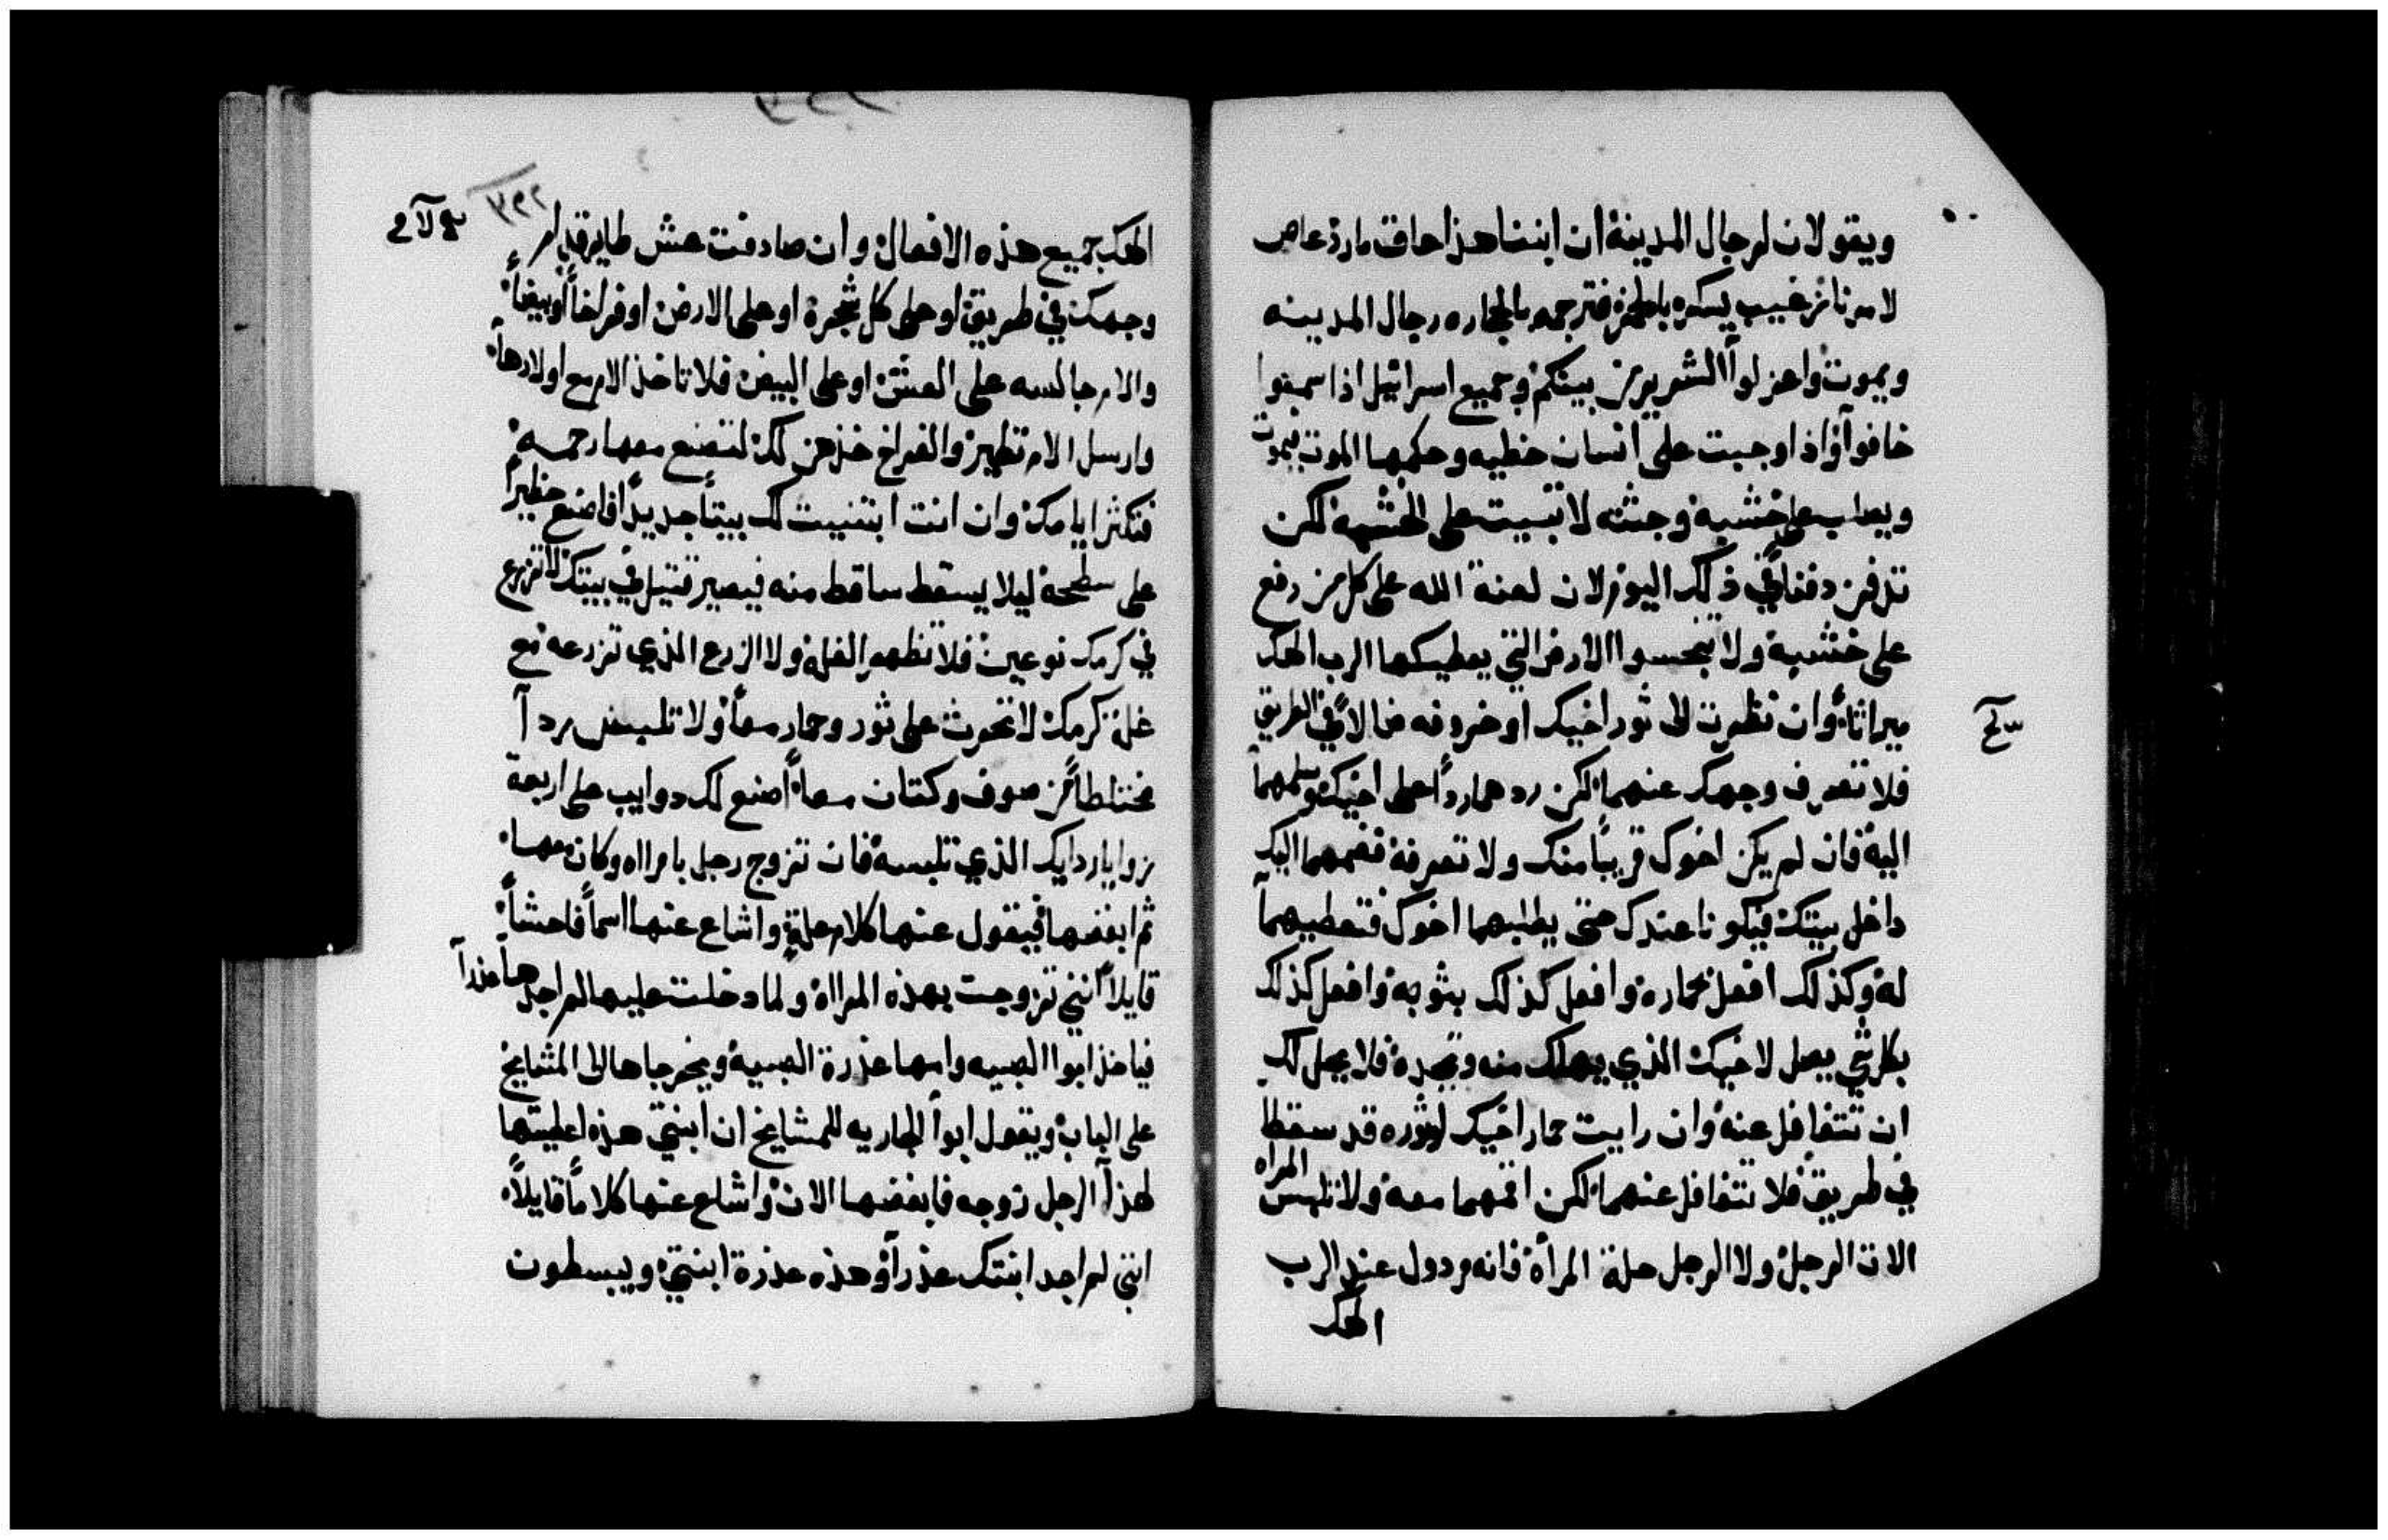 ويقولان لرجال المدينة ان ابننا هذا عاق مارد عاص
لامرنا يسكر بالخمر فترجمه بالحجاره رجال المدينه
ويموت واعزلوا الشرير من بينكم وجميع اسرائيل اذا سمعوا
خافوا واذا وجبت على انسان خطيه وحكمها الموت فيموت
ويصلب على خشبة وجثته لا تبيت على الخشبة لكن
تدفن دفنا في ذلك اليوم لان لعنة الله على كل من رفع
على خشبة ولا تنجسوا الارض التي يعطيكها الرب الهك
ميراثا وان نظرت الى ثور اخيك او خروفه ضالا في الطريق
فلا تصرف وجهك عنهما لكن ردهما ردا على اخيك وسلمهما
اليه فان لم يكن اخوك قريبا منك ولا تعرفه فضمهما اليك
داخل بيتك فيكونا عندك حتى يطلبهما اخوك فتعطيهما
له وكذلك افعل بحماره وافعل كذلك بثوبه وافعل كذلك
بكل شي يصل لاخيك الذي يهلك منه وتجده فلا يحل لك
ان تتغافل عنه وان رايت حمار اخيك او ثوره قد سقطا
في طريق فلا تتغافل عنهما لكن اقمهما معه ولا تلبس المراه
الات الرجل ولا الرجل حلة المرأة فانه مردول عند الرب
الهك
الهك جميع هذه الافعال وان صادفت عش طاير قدام
وجهك في طريق او على كل شجرة او على الارض او فراخا او بيضا
والام جالسه على العش او على البيض فلا تاخذ الام مع اولادها
وارسل الام تطير والفراخ خذهن لك لتصنع معها رحمة
فتكثر ايامك وان انت ابتنيت لك بيتا جديدا فاصنع حظيرا
على سطحه ليلا يسقط ساقط منه فيصير قتيل في بيتك لا تزرع
في كرمك نوعين فلا تظهر الغله ولا الزرع الذي تزرعه مع
غلة كرمك لا تحرث على ثور وحمار معا ولا تلبس ردآ
مختلطا من صوف وكتان معا اصنع لك دوايب على اربعة
زوايا ردايك الذي تلبسه فان تزوج رجل بامراه وكان معها
ثم ابغضها فيقول عنها كلام علة واشاع عنها اسما فاحشا
قايلا انني تزوجت بهذه المراة ولما دخلت عليها لم اجدها عذرآ
فياخذ ابوا الصبيه وامها عذرة الصبية ويخرجاها الى المشايخ
على الباب ويقول ابوا الجاريه للمشايخ ان ابنتي هذه اعطيتها
لهذا الرجل زوجه فابغضها الان واشاع عنها كلاما قايلا
انني لم اجد ابنتك عذرآ وهذه عذرة ابنتي ويبسطون